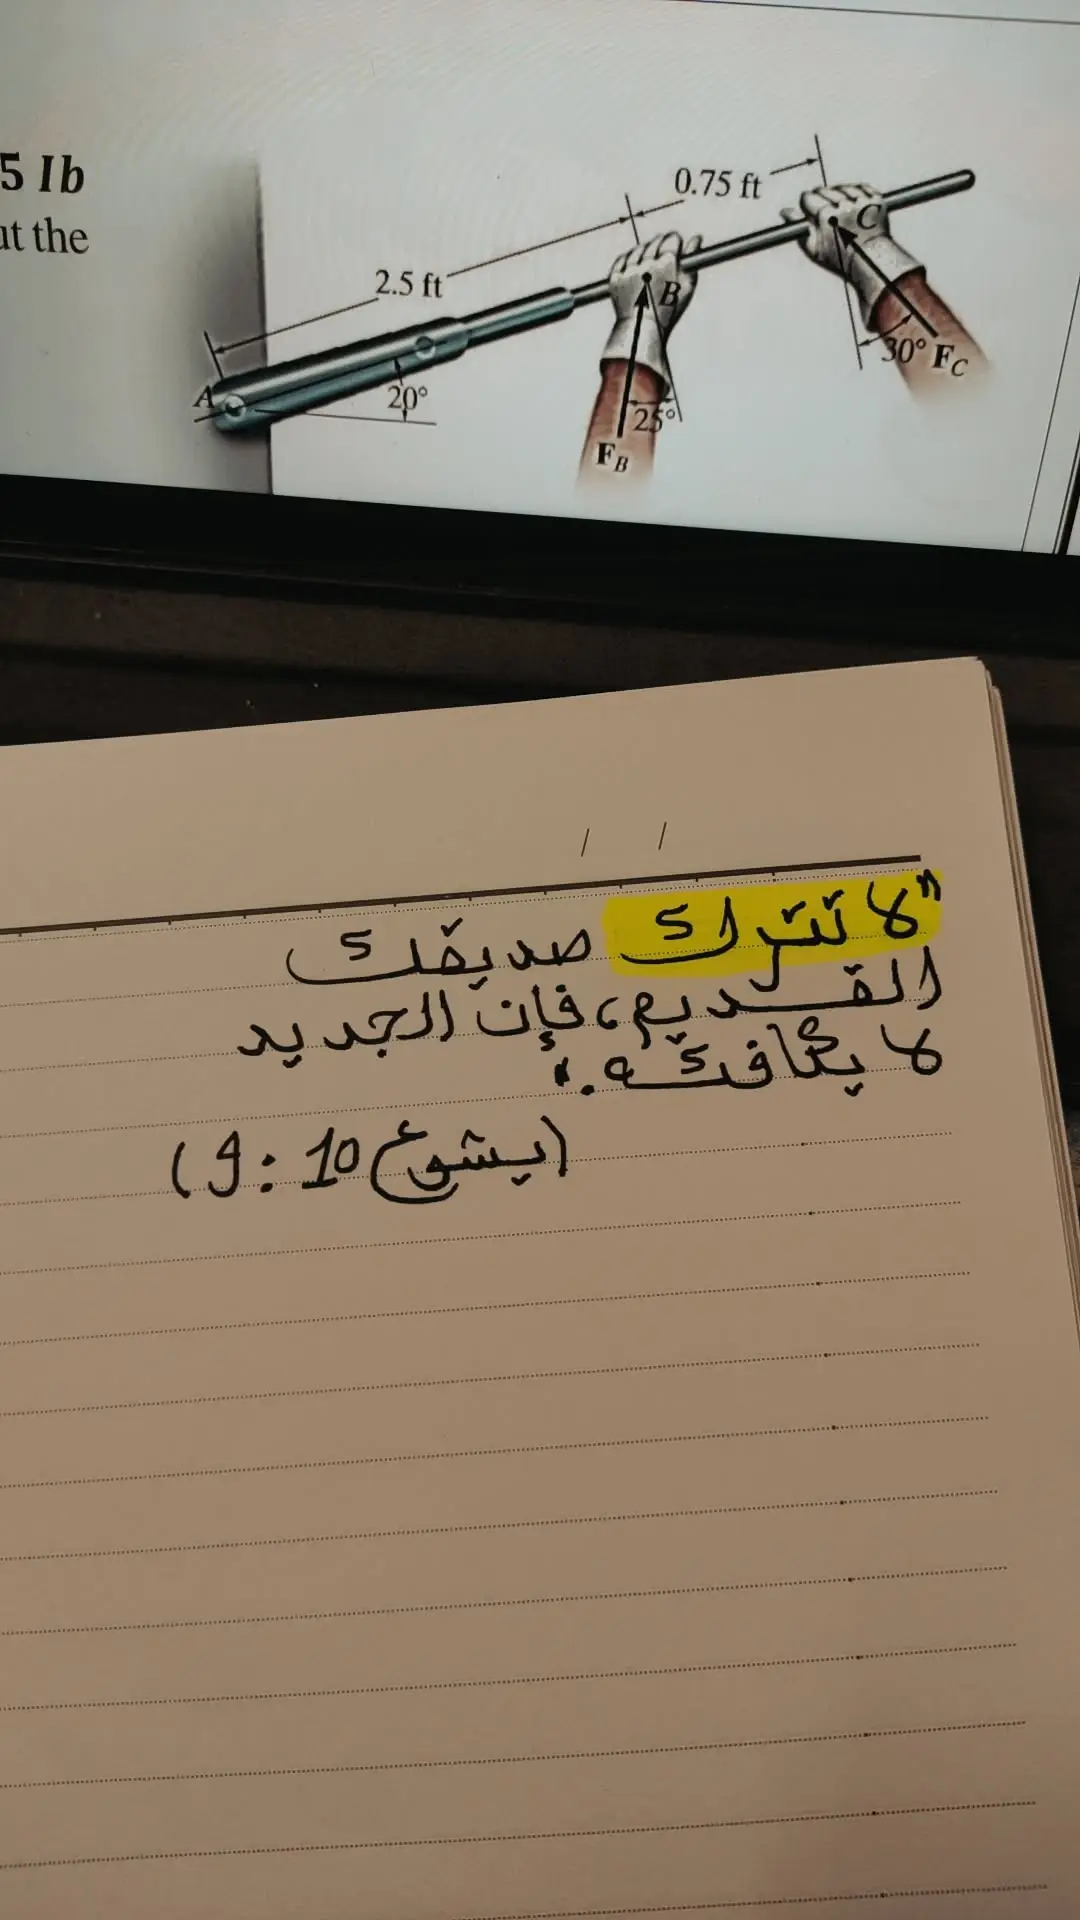 5 lb
ut the
2.5 ft
0.75 ft
A
20°
B
25°
F_B
C
30°
F_C
/ /
"لا تترك صديقك
القديم، فإن الجديد
لا يكافئه."
(يشوع 10 : 9)